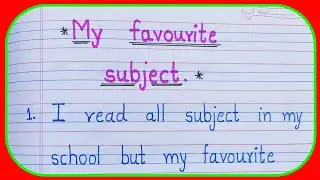 *My favourite
subject.*
1. I read all subject in my
school but my favourite